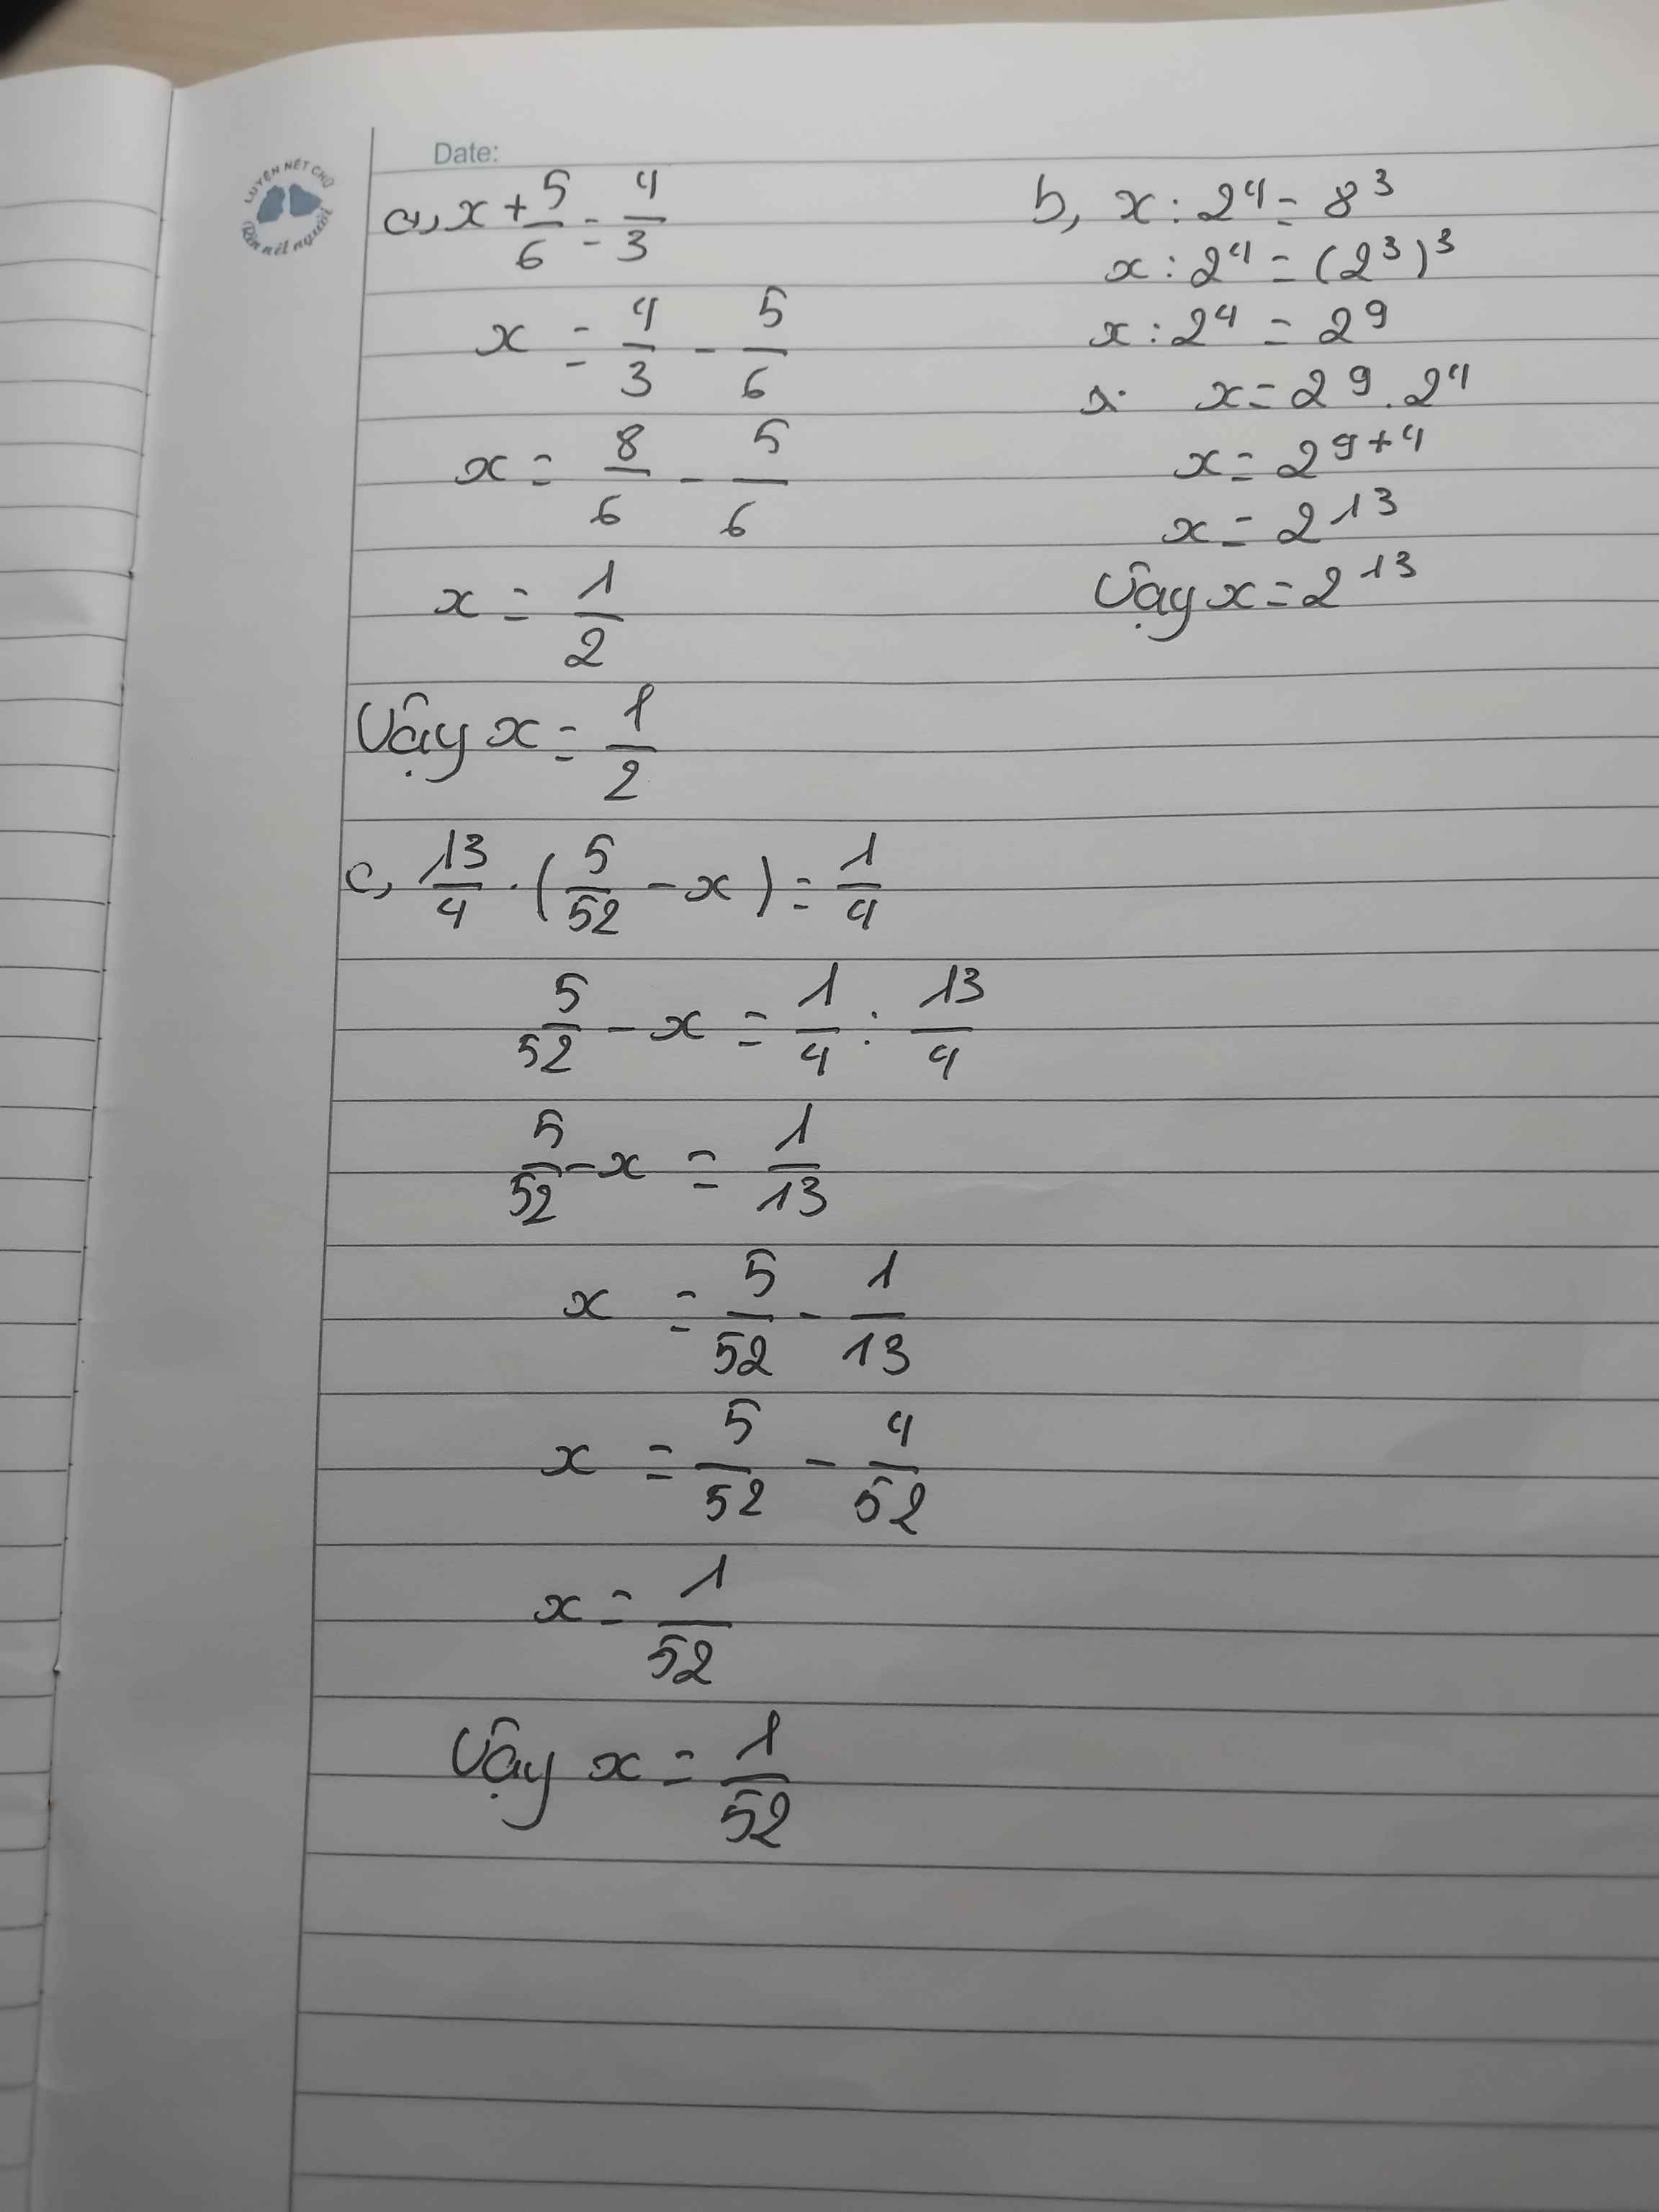 LUYỆN NÉT CHỮ
Rèn nết người
Date:
a, x + 5/6 = 4/3
x = 4/3 - 5/6
x = 8/6 - 5/6
x = 1/2
Vậy x = 1/2
b, x : 2^4 = 8^3
x : 2^4 = (2^3)^3
x : 2^4 = 2^9
x = 2^9 . 2^4
x = 2^9+4
x = 2^13
Vậy x = 2^13
c, 13/4 . (5/52 - x) = 1/4
5/52 - x = 1/4 : 13/4
5/52 - x = 1/13
x = 5/52 - 1/13
x = 5/52 - 4/52
x = 1/52
Vậy x = 1/52